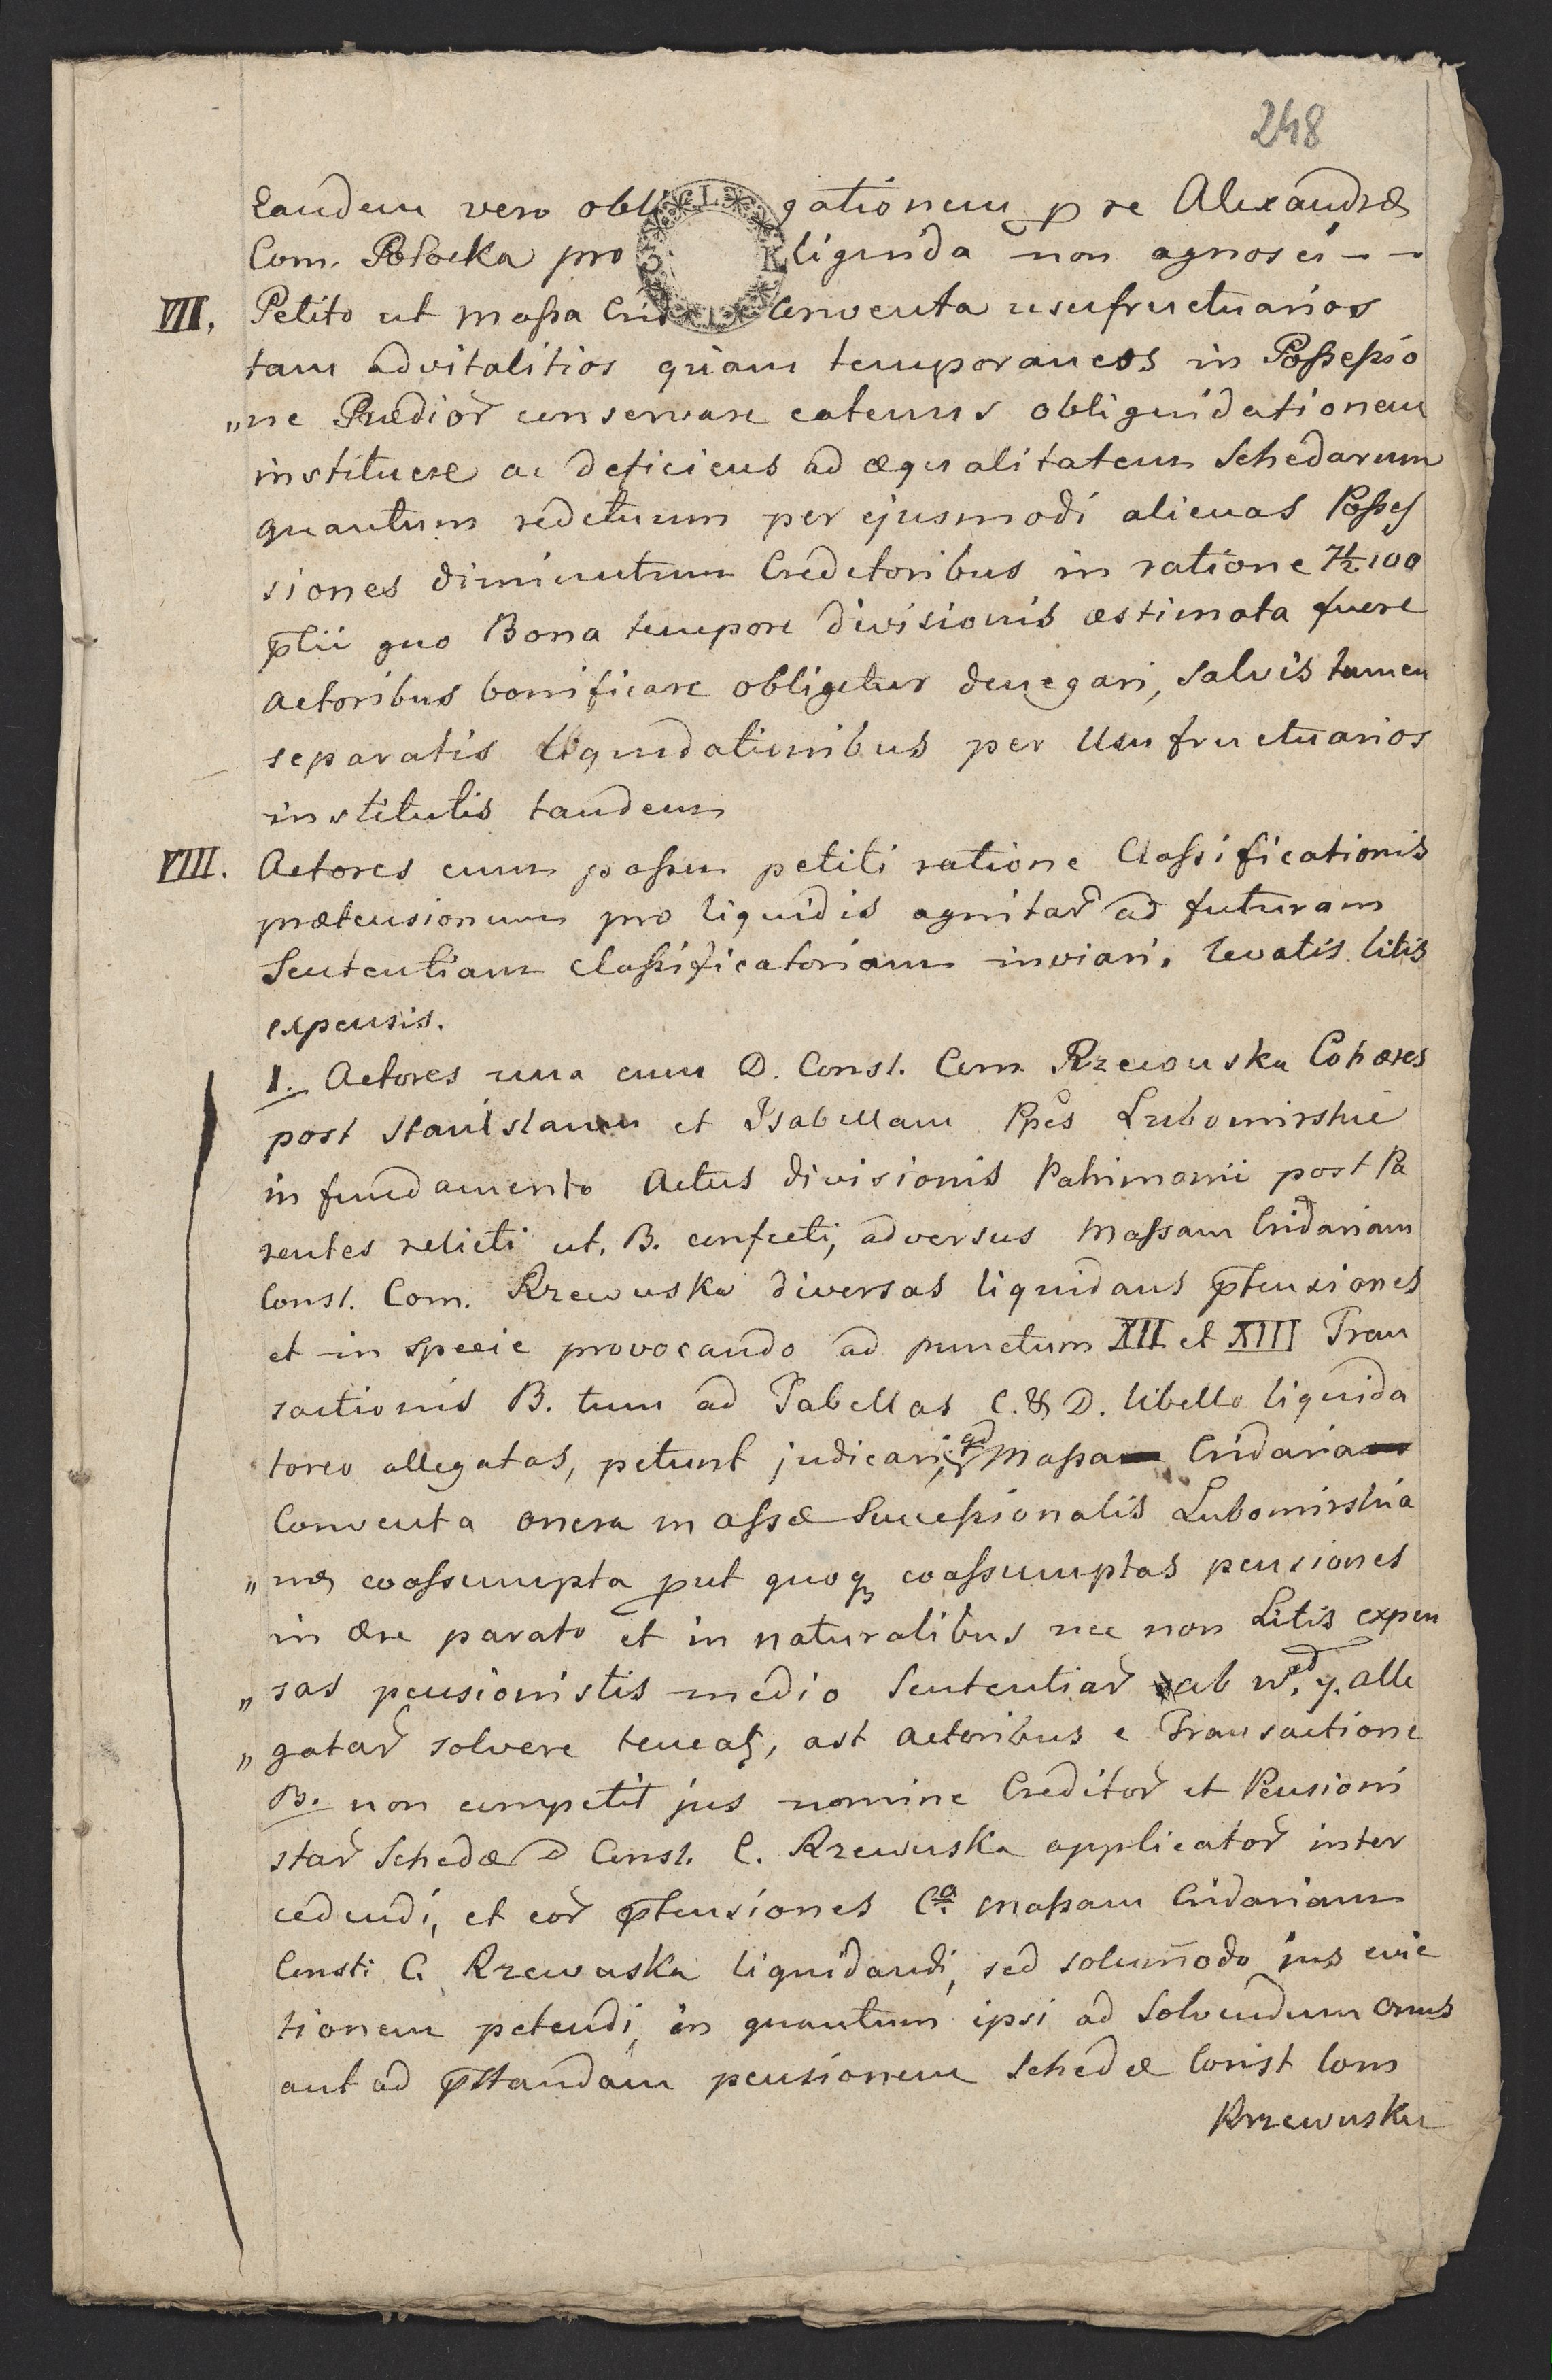 248
Eandem vero obligationem p re Alexandræ
Com. Potocka pro liquida non agnosci - -
VII. Petito ut Massa Crid Conventa usufructuarios
tam advitalitios quam temporaneos in Possessio
„ne Prædior conservare eatenus obliquidationem
instituere ac deficiens ad æqualitatem Schedarum
quantum redetuum per ejusmodi alienas Posses
siones diminutum Creditoribus in ratione 7½ 100
ptii quo Bona tempore divisionis æstimata fuere
Actoribus bonificare obligetur denegari, Salvis tamen
separatis liquidationibus per Usufructuarios
institutis tandem
VIII. Actores cum passu petiti ratione Classificationis
prætensionum pro liquidis agnitar ad futuram
Sententiam classificatoriam inviari, levatis litis
expensis.
1. Actores una cum D. Const. Com. Rzewuska Cohæres
post Stanislaum et Isabellam Ppes Lubomirskie
in fundamento Actus divisionis Patrimonii post Pa
rentes relicti ut. B. confecti, adversus Massam Cridariam
Const. Com. Rzewuska diversas liquidans ptensiones
et in specie provocando ad punctum XII et XIII Tran
sactionis B. tum ad Tabellas C. & D. libello liquida
toreo allegatas, petunt judicari, qd Massa Cridaria
Conventa onera massæ Successionalis Lubomirskia
„næ coassumpta put quoq coassumptas pensiones
in ære parato et in naturalibus nec non Litis expen
„sas pensionistis medio Sententiar ab w. ad y. alle
„gatar solvere teneat, ast Actoribus e Transactione
B. non competit jus nomine Creditor et Pensioni
star Schedæ D Const. C. Rzewuska applicator inter
cedendi, et eor ptensiones Ca Massam Cridariam
Consti C. Rzewuska liquidandi, sed solumodo jus evic
tionem petendi, in quantum ipsi ad Solvendum onus
aut ad pstandam pensionem Schedæ Const Com
Rzewuska